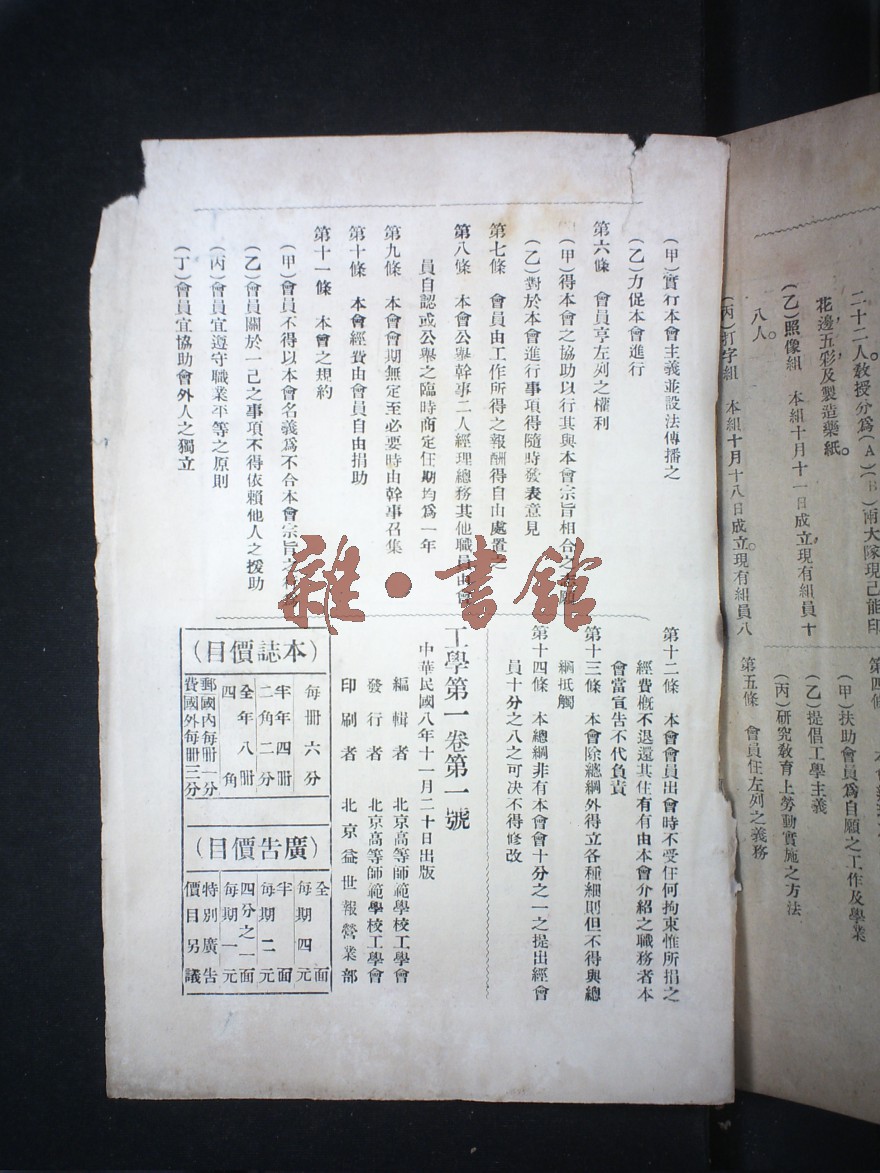 二十二人。敎授分爲(A)(B)兩大隊現已能印
花邊，五彩，及製造藥紙。
(乙)照像組　本組十月十一日成立，現有組員十
八人。
(丙)打字組　本組十月十八日成立。現有組員八
第四條
(甲)扶助會員爲自願之工作及學業
(乙)提倡工學主義
(丙)研究敎育上勞動實施之方法
第五條　會員任左列之義務
(甲)實行本會主義並設法傳播之
(乙)力促本會進行
第六條　會員享左列之權利
(甲)得本會之協助以行其與本會宗旨相合之志願
(乙)對於本會進行事項得隨時發表意見
第七條　會員由工作所得之報酬得自由處置之
第八條　本會公舉幹事二人經理總務其他職員由會
員自認或公舉之臨時商定任期均爲一年
第九條　本會會期無定至必要時由幹事召集
第十條　本會經費由會員自由捐助
第十一條　本會之規約
(甲)會員不得以本會名義爲不合本會宗旨之
(乙)會員關於一己之事項不得依賴他人之援助
(丙)會員宜遵守職業平等之原則
(丁)會員宜協助會外人之獨立
第十二條　本會會員出會時不受任何拘束惟所捐之
經費槪不退還其住有有由本會介紹之職務者本
會當宣告不代負責
第十三條　本會除總綱外得立各種細則但不得與總
綱抵觸
第十四條　本總綱非有本會會十分之一之提出經會
員十分之八之可决不得修改
工學第一卷第一號
中華民國八年十一月二十日出版
編輯者　北京高等師範學校工學會
發行者　北京高等師範學校工學會
印刷者　北京益世報營業部
(本誌價目)
每冊六分
半年四冊
二角二分
全年八冊
四角
郵國內每冊一分
費國外每冊三分
(廣告價目)
全面
每期四元
半面
每期二元
四分之一面
每期一元
特別廣告
價目另議
雜·書館